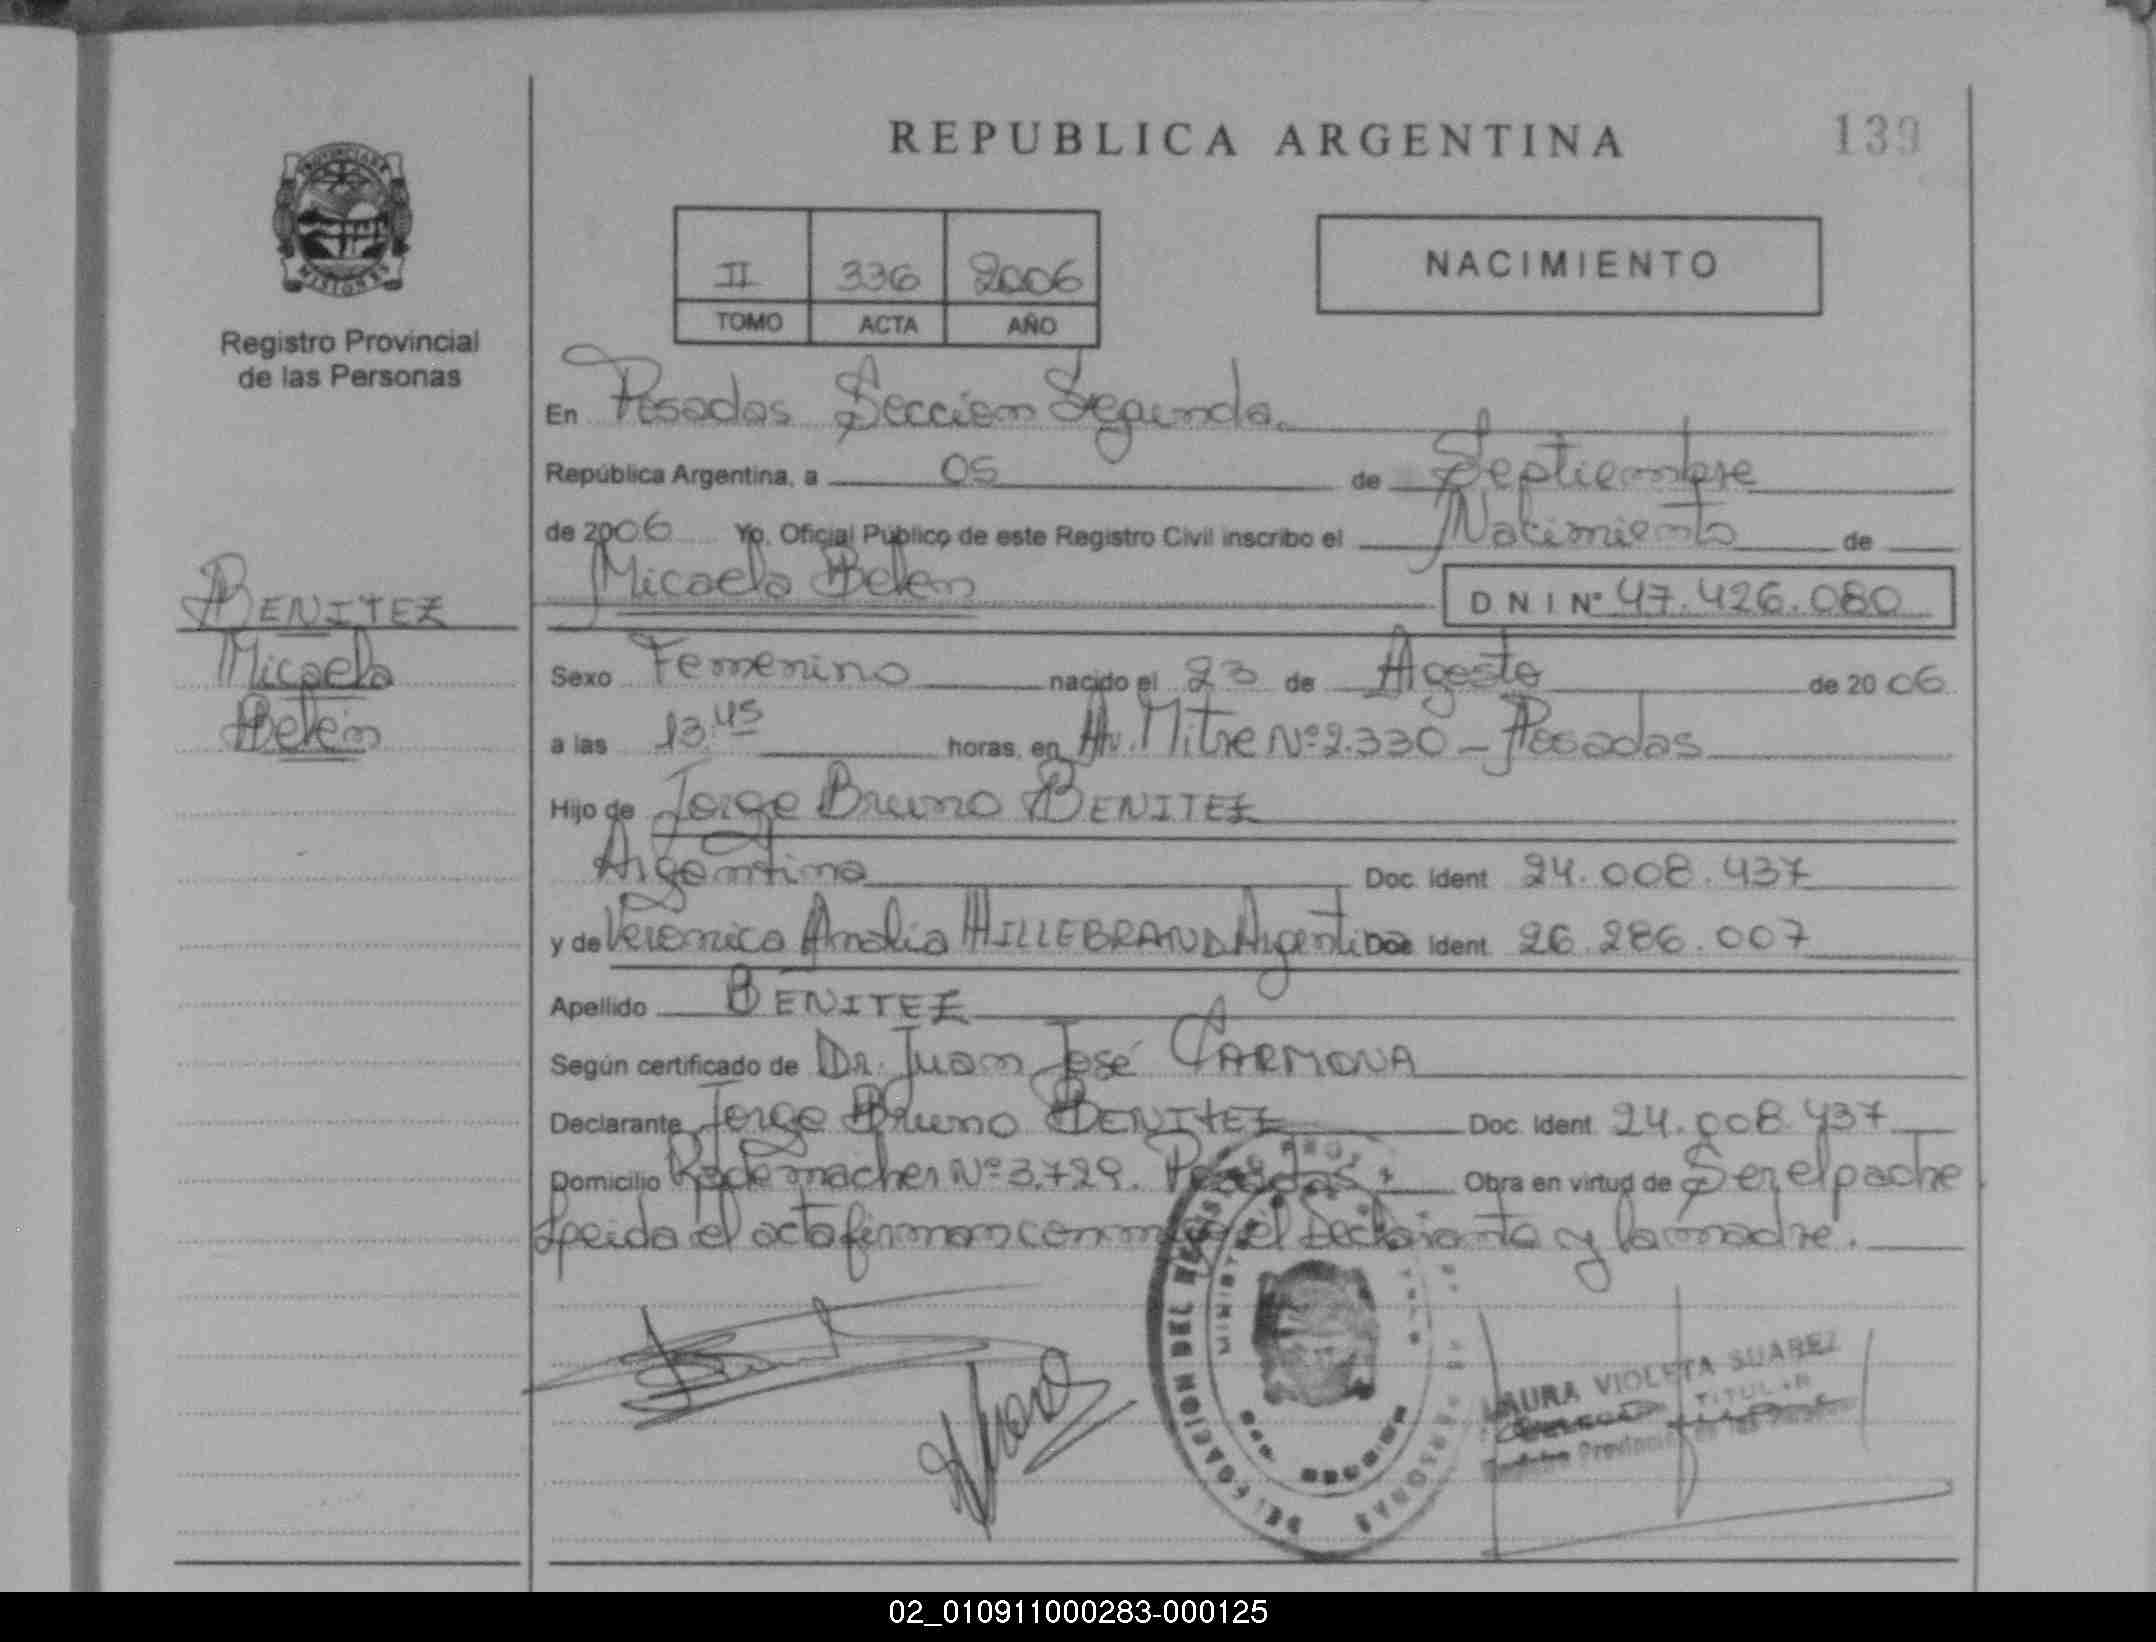 REPUBLICA ARGENTINA
139
PROVINCIA DE
MISIONES
Registro Provincial
de las Personas
II 336 2006
TOMO ACTA AÑO
NACIMIENTO
En Posadas Seccion Segunda.
República Argentina, a 05 de Septiembre
de 2006 Yo, Oficial Público de este Registro Civil inscribo el Nacimiento de
Micaela Belén
DNI Nº 47.426.080
BENITEZ
Micaela
Belén
Sexo Femenino nacido el 23 de Agosto de 2006
a las 13.45 horas, en Av. Mitre Nº 2.330 - Posadas
Hijo de Jorge Bruno BENITEZ
Argentina Doc. Ident 24.008.437
y de Veronica Analia HILLEBRAND Argentina Doc. Ident 26.286.007
Apellido BENITEZ
Según certificado de Dr. Juan José CARMONA
Declarante Jorge Bruno BENITEZ Doc. Ident 24.008.437
Domicilio Rademacher Nº 3.729. Posadas Obra en virtud de Ser el padre
Leida el acta firman conmigo el Declarante y la madre.
DELEGACION DEL REGIS
PERSONAS
LAURA VIOLETA SUAREZ
TITULAR
Registro Provincial de las
02_010911000283-000125